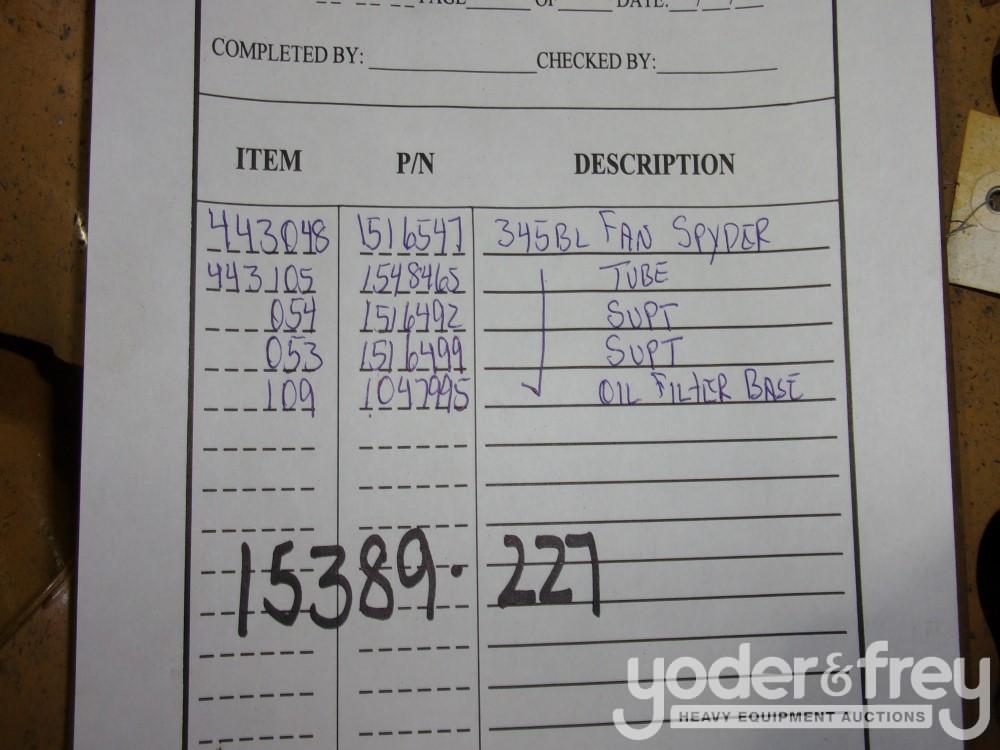 PAGE_____ OF_____ DATE:__/__/__
COMPLETED BY: ______________ CHECKED BY:__________
ITEM P/N DESCRIPTION
443048 1516547 345BL FAN SPYDER
443105 1548465 TUBE
054 1516492 SUPT
053 1516499 SUPT
109 1047995 OIL FILTER BASE
15389. 227
yoder&frey
HEAVY EQUIPMENT AUCTIONS